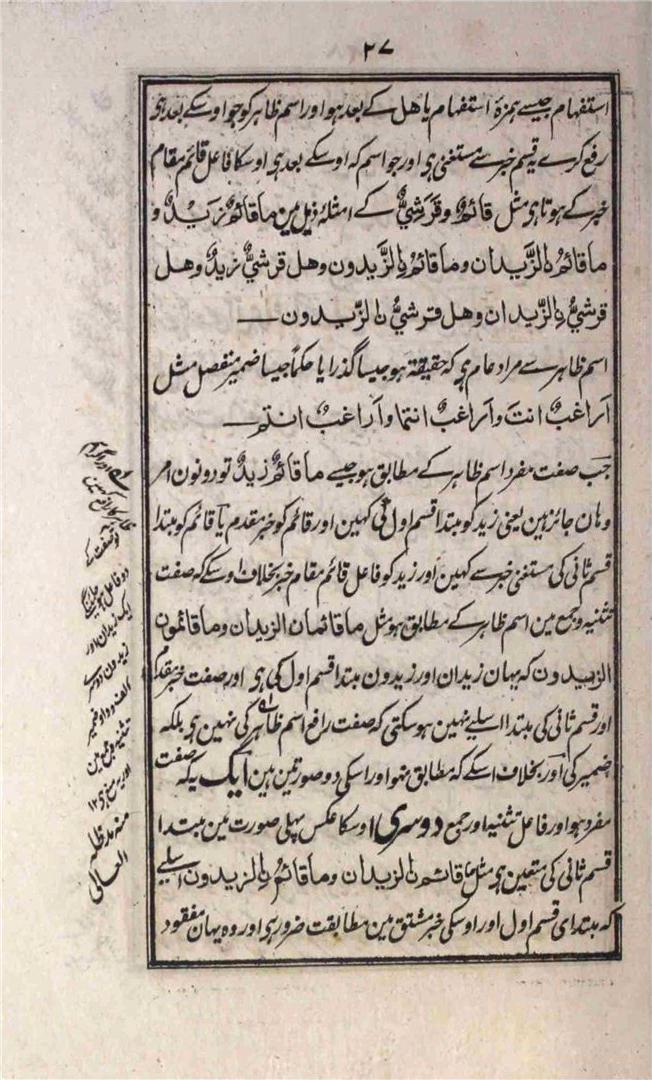 ۲۷
استفہام جیسے ہمزۂ استفہام یا ھل کے بعد ہو اور اسم ظاہر کو جو اوسکے بعد ہی
رفع کرے یہ قسم خبر سے مستغنی ہی اور جو اسم کہ اوسکے بعد ہی اوسکا فاعل قائم مقام
خبر کے ہوتا ہی مثل قائمٌ و قرشیٌّ کے امثلۂ ذیل مین ما قائمٌ زیدٌ و
ما قائمٌ الزَّیدان وما قائمٌ الزَّیدون وھل قرشیٌّ زیدٌ وھل
قرشیٌّ الزَّیدان وھل قرشیٌّ الزَّیدون
اسم ظاہر سے مراد عام ہی کہ حقیقۃً ہو جیسا گذرا یا حکماً جیسا ضمیر منفصل مثل
اَراغبٌ انتَ و اَراغبٌ انتما و اَراغبٌ انتم
جب صفت مفرد اسم ظاہر کے مطابق ہو جیسے ما قائمٌ زیدٌ تو دونون امر
وہان جائز ہین یعنی زید کو مبتدا قسم اول کی کہین اور قائم کو خبر مقدم یا قائم کو مبتدا
قسم ثانی کی مستغنی خبر سے کہین اور زید کو فاعل قائم مقام خبر بخلاف اوسکے کہ صفت
تثنیہ و جمع مین اسم ظاہر کے مطابق ہو مثل ما قائمان الزیدان وما قائمون
الزیدون کہ یہان زیدان اور زیدون مبتدا قسم اول کی ہی اور صفت خبر مقدم
اور قسم ثانی کی مبتدا اسلیے نہین ہو سکتی کہ صفت رافع اسم ظاہر کی نہین ہی بلکہ
ضمیر کی اور بخلاف اسکے کہ مطابق نہو اور اسکی دو صورتین ہین ایک یہ کہ صفت
مفرد ہو اور فاعل تثنیہ اور جمع دوسری اوسکا عکس پہلی صورت مین مبتدا
قسم ثانی کی متعین ہی مثل ما قائم الزیدان وما قائمٌ الزیدون اسلیے
کہ مبتدای قسم اول اور اوسکی خبر مشتق مین مطابقت ضرور ہی اور وہ یہان مفقود
تو صفت کے
دو فاعل ہو جائینگے
ایک زیدان اور
زیدون دوسرے
الف و واو ضمیر
تثنیہ و جمع مین
اور یہ منع ہی ۱۲
منہ مدظلہ
العالی